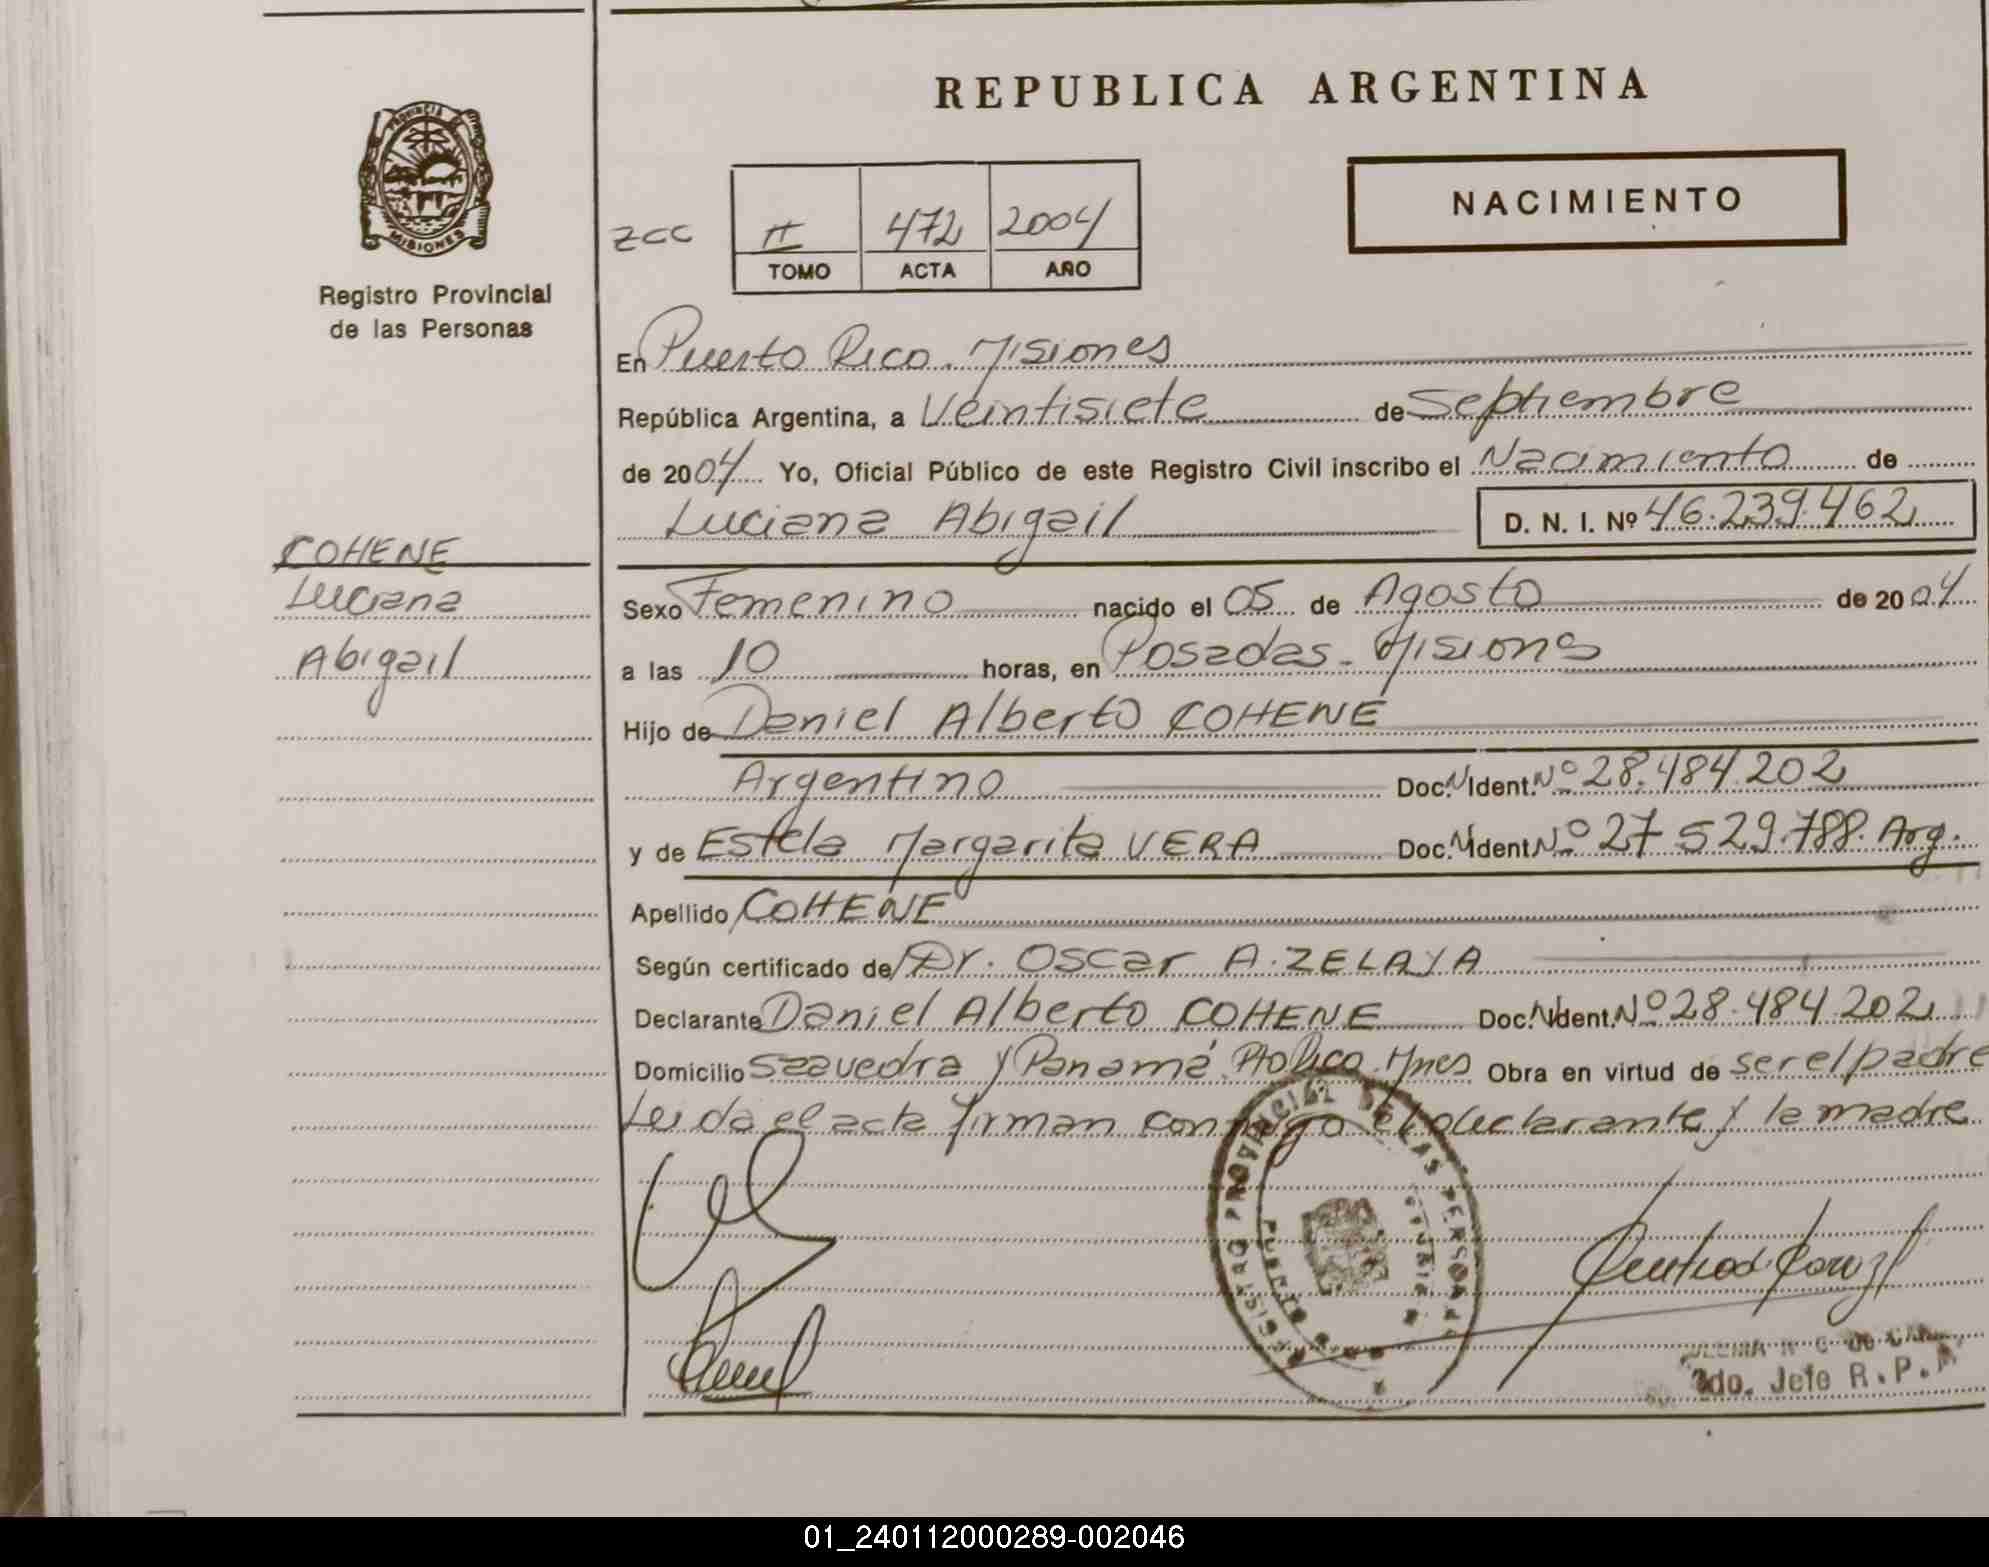 REPUBLICA ARGENTINA
PROVINCIA
MISIONES
Registro Provincial
de las Personas
NACIMIENTO
zcc
II 472 2004
TOMO ACTA AÑO
En Puerto Rico. Misiones
República Argentina, a Veintisiete de Septiembre
de 2004 Yo, Oficial Público de este Registro Civil inscribo el Nacimiento de
Luciana Abigail D. N. I. Nº 46.239.462
COHENE
Luciana
Abigail
Sexo Femenino nacido el 05 de Agosto de 2004
a las 10 horas, en Posadas. Misiones
Hijo de Daniel Alberto COHENE
Argentino Doc. N. Ident. Nº 28.484.202
y de Estela Margarita VERA Doc. N. Ident. Nº 27 529.788. Arg.
Apellido COHENE
Según certificado de Dr. Oscar A. ZELAYA
Declarante Daniel Alberto COHENE Doc. N. Ident. Nº 28.484.202
Domicilio Saavedra y Panamá. Pto Rico. Mnes Obra en virtud de ser el padre
Leida el acta firman conmigo el declarante y la madre
REGISTRO PROVINCIAL DE LAS PERSONAS
PUERTO
2do. Jefe R.P.P.
01_240112000289-002046